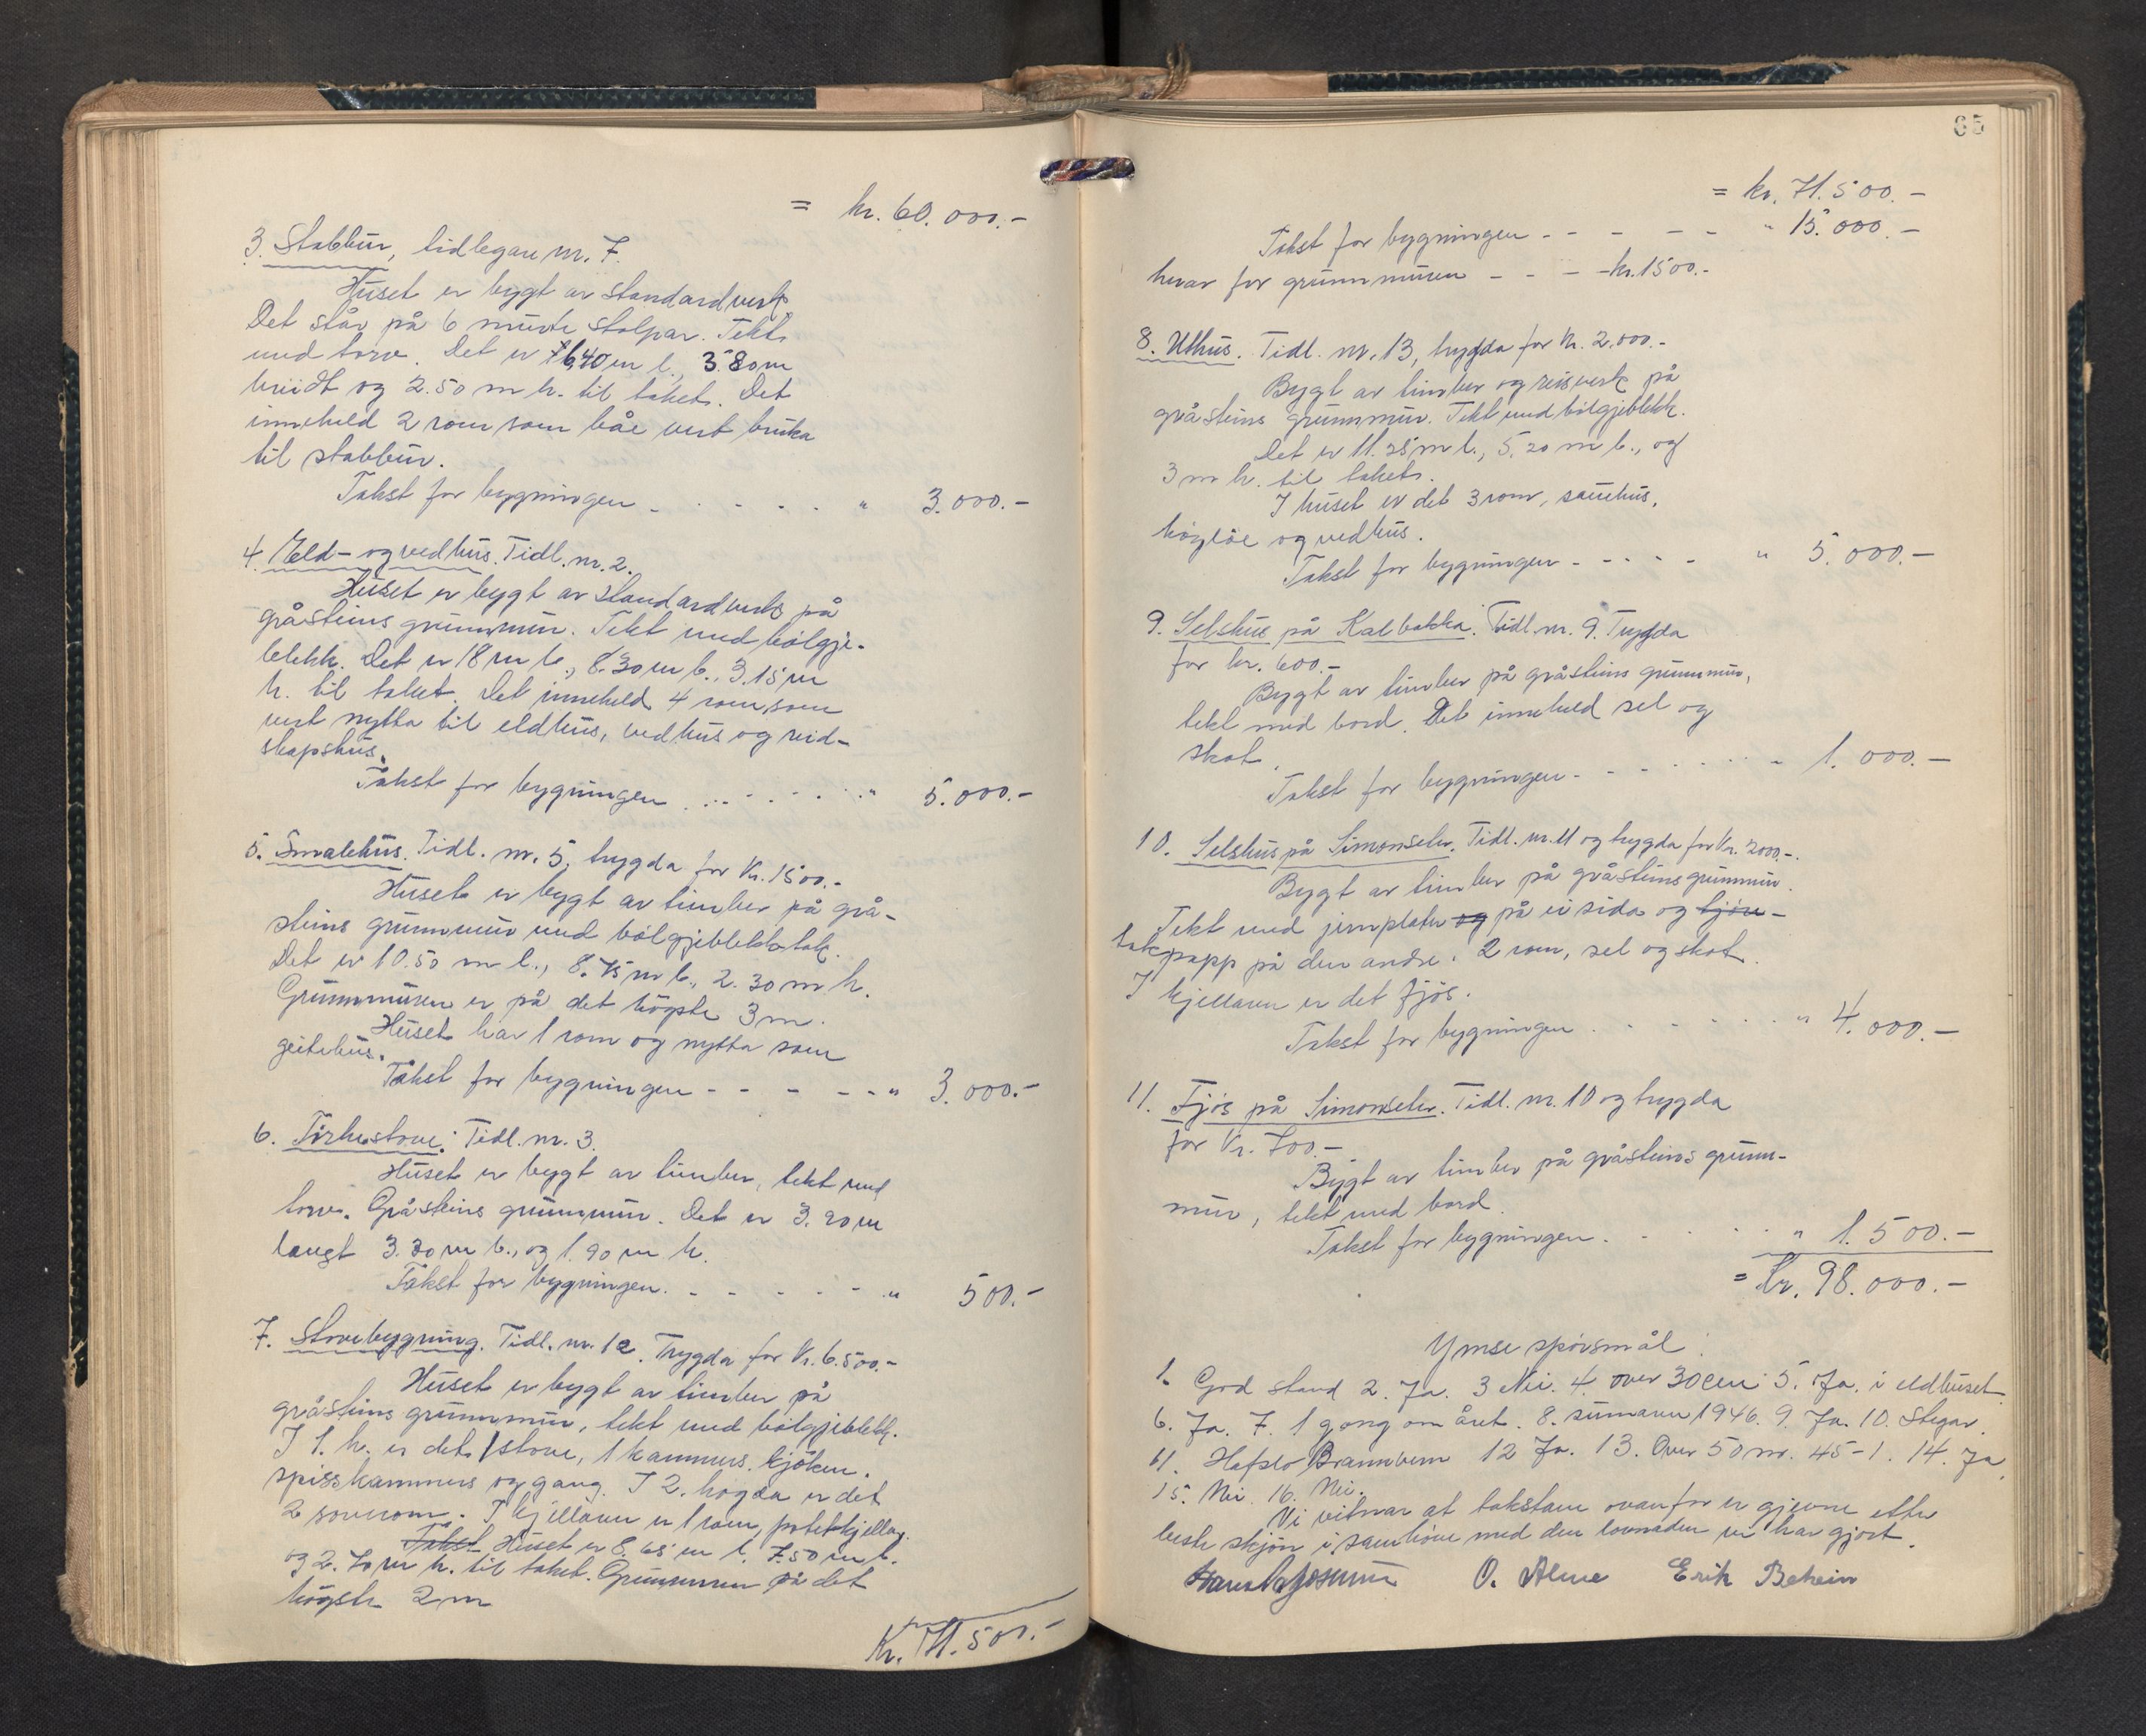 = kr. 60.000.-
3. Stabbur, tidlegare nr. 7.
Huset er bygt av standardverk
Det står på 6 murte stolpar. Tekt
med torv. Det er 6,40 m l., 3.80 m
breidt og 2.50 m h. til taket. Det
inneheld 2 rom som båe vert bruka
til stabbur.
Takst for bygningen - - - - - " 3.000.-
4. Eld- og vedhus. Tidl. nr. 2.
Huset er bygt av standardverk på
gråsteins grunnmur. Tekt med bölgje-
blekk. Det er 18 m l., 8.30 m b., 3.15 m
h. til taket. Det inneheld 4 rom som
vert nytta til eldhus, vedhus og reid-
skapshus.
Takst for bygningen . . . - - - - " 5.000.-
5. Smalehus. Tidl. nr. 5, trygda for Kr. 1500.-
Huset er bygt av timber på grå-
steins grunnmur med bölgjeblekktak.
Det er 10.50 m l., 8.75 m b., 2.30 m h.
Grunnmuren er på det högste 3 m.
Huset har 1 rom og nytta som
geitehus.
Takst for bygningen - - - - - " 3.000.-
6. Törkestove. Tidl. nr. 3.
Huset er bygt av timber, tekt med
torv. Gråsteins grunnmur. Det er 3.90 m
langt 3.30 m b., og 1.90 m h.
Takst for bygningen. - - - - - " 500.-
7. Stovebygning. Tidl. nr. 12. Trygda for Kr. 6.500.-
Huset er bygt av timber på
gråsteins grunnmur, tekt med bölgjeblekk.
I 1. h. er det 1 stove, 1 kammers, kjöken,
spisskammers og gang. I 2. högda er det
2 soverom. I kjellaren er 1 rom, potetkjellar.
Takst Huset er 8.65 m l. 7.50 m b.
og 2.70 m h. til taket. Grunnmuren på det
högste 2 m
Kr. 71.500.-
65
= kr. 71.500.-
Takst for bygningen - - - - - " 15.000.-
herav for grunnmuren - - - - kr. 1500.-
8. Uthus. Tidl. nr. 13, trygda for Kr. 2.000.-
Bygt av timber og reisverk på
gråsteins grunnmur. Tekt med bölgjeblekk.
Det er 11.25 m l., 5.20 m b., og
3 m h. til taket.
I huset er det 3 rom, sauehus,
höyløe og vedhus.
Takst for bygningen - - - - - " 5.000.-
9. Selshus på Kalbakka. Tidl. nr. 9. Trygda
for kr. 600.-
Bygt av timber på gråsteins grunnmur,
tekt med bord. Det inneheld sel og
skot.
Takst for bygningen - - - - - - - 1.000.-
10. Selshus på Simonselv. Tidl. nr. 11 og trygda for Kr. 2000.-.
Bygt av timber på gråsteins grunnmur.
Tekt med jernplater og på ei sida og tjøre-
takpapp på den andre. 2 rom, sel og skot.
I kjellaren er det fjös.
Takst for bygningen . - - - - - " 4.000.-
11. Fjös på Simonselv. Tidl. nr. 10 og trygda
for Kr. 700.-
Bygt av timber på gråsteins grunn-
mur, tekt med bord.
Takst for bygningen . - - - " 1.500.-
= Kr. 98.000.-
Ymse spörsmål:
1. God stand 2. Ja. 3 Nei. 4. over 30 cm 5. Ja. i eldhuset
6. Ja. 7. 1 gong om året. 8. sumaren 1946. 9. Ja. 10. Stegar.
11. Hafslo Brannvern 12 Ja. 13. Over 50 m. 45-1. 14. Ja
15. Nei. 16. Nei.
Vi vitnar at takstane ovanfor er gjevne etter
beste skjön i samhöve med den lovnaden vi har gjort.
O. Alme Erik Bekein